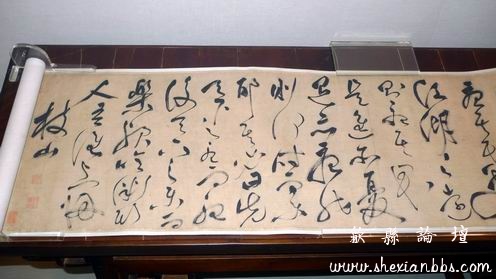 憂其民處
江湖之遠
則憂其君
是進亦憂
退亦憂然
則何時而樂
耶其必曰先
天下之憂而憂
後天下之樂而
樂歟噫微斯
人吾誰與歸
枝山
歙縣論壇
www.shexianbbs.com